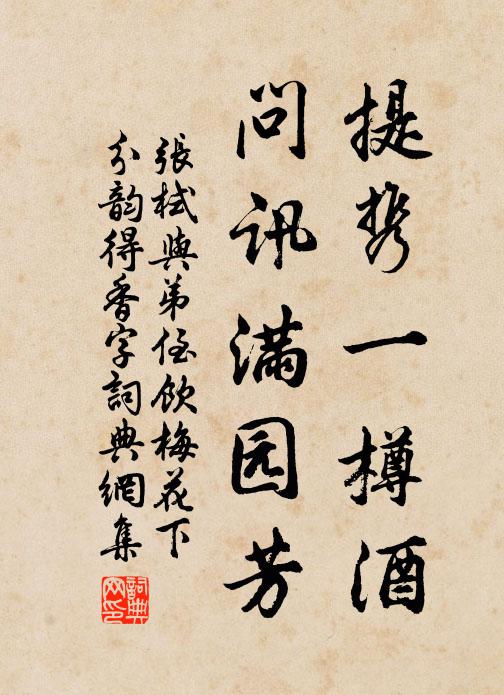 提携一樽酒
问讯满园芳
張栻與弟侄飲梅花下
分韵得香字詞典網集
詞典网印